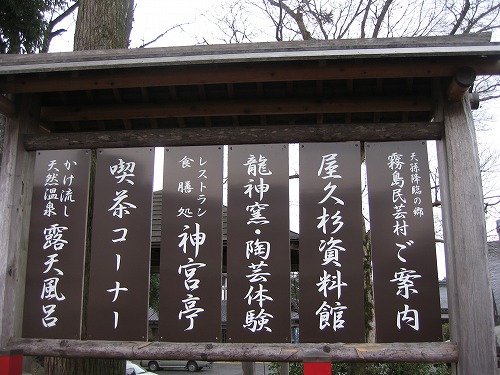 天孫降臨の郷
霧島民芸村ご案内
屋久杉資料館
龍神窯・陶芸体験
レストラン
食膳処
神宮亭
喫茶コーナー
かけ流し
天然温泉
露天風呂